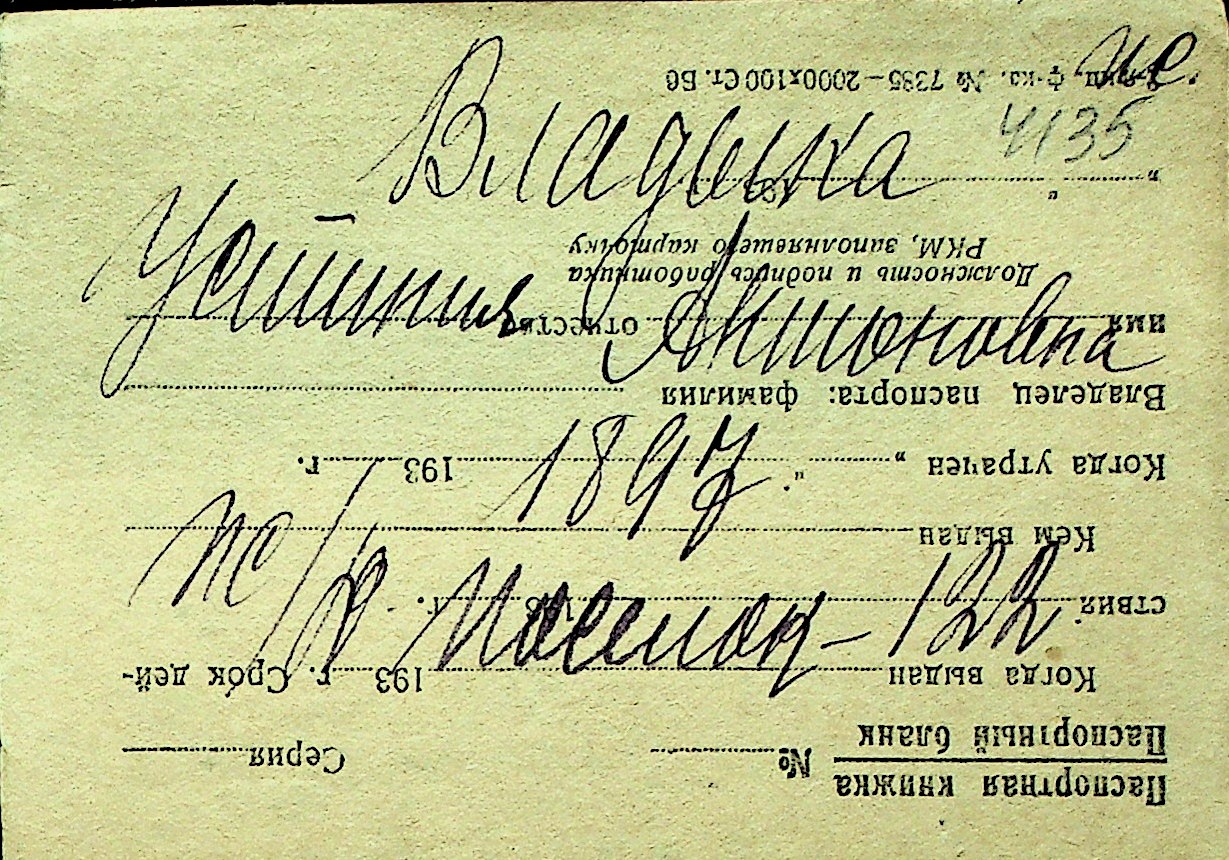 Владыка
4135
Устиния Антоновна
1897
ж/д поселок – 122
Паспортная книжка
Паспортный бланк
№ Серия
Когда выдан 193 г. Срок дей-
ствия 193 г.
Кем выдан
Когда утрачен „ “ 193 г.
Владелец паспорта: фамилия
имя отчество
Должность и подпись работника
РКМ, заполнявшего карточку
„ “ 193
ф-ка. № 7385—2000х100 Ст. Б6